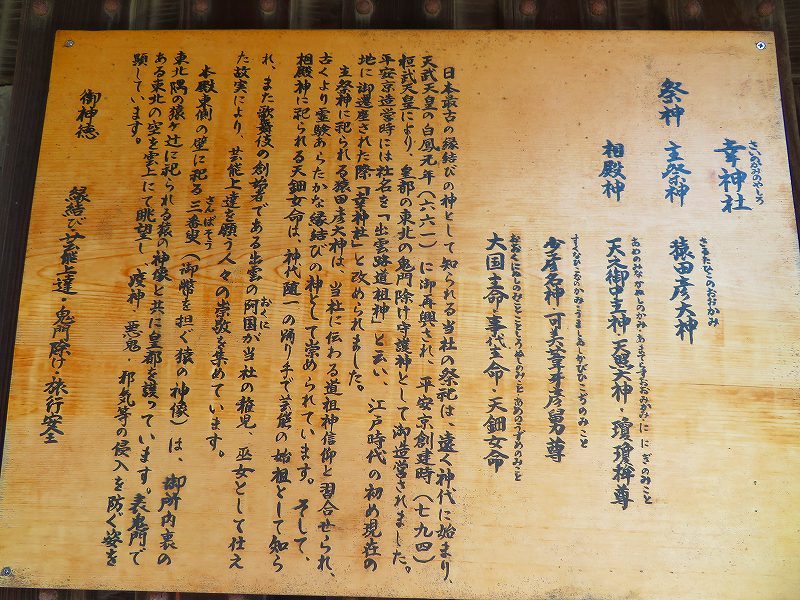 さいのかみのやしろ
幸神社
祭神 主祭神 猿田彦大神
さるたひこのおおかみ
相殿神 天之御中主神・天照大神・瓊瓊杵尊
あめのみなかぬしのかみ・あまてらすおおみかみ・ににぎのみこと
少彦名神・可美葦牙彦舅尊
すくなひこなのかみ・うましあしかびひこぢのみこと
大国主命・事代主命・天鈿女命
おおくにぬしのみこと・ことしろぬしのみこと・あめのうずめのみこと
日本最古の縁結びの神として知られる当社の祭祀は、遠く神代に始まり、
天武天皇の白鳳元年(六六一)に御再興され、平安京創建時(七九四)
桓武天皇により、皇都の東北の鬼門除け守護神として御造営されました。
平安京造営時には社名を「出雲路道祖神」と云い、江戸時代の初め現在の
地に御遷座された際「幸神社」と改められました。
主祭神に祀られる猿田彦大神は、当社に伝わる道祖神信仰と習合せられ、
古くより霊験あらたかな縁結びの神として崇められています。そして、
相殿神に祀られる天鈿女命は、神代随一の踊り手で芸能の始祖として知ら
れ、また歌舞伎の創始者である出雲の阿国が当社の稚児、巫女として仕え
おくに
た故実により、芸能上達を願う人々の崇敬を集めています。
本殿東側の壁に祀る三番叟(御幣を担ぐ猿の神像)は、御所内裏の
さんばそう
東北隅の猿ヶ辻に祀られる猿の神像と共に皇都を護っています。表鬼門で
ある東北の空を雲上にて眺望し、疫神・悪鬼・邪気等の侵入を防ぐ姿を
顕しています。
御神徳 縁結び・芸能上達・鬼門除け・旅行安全